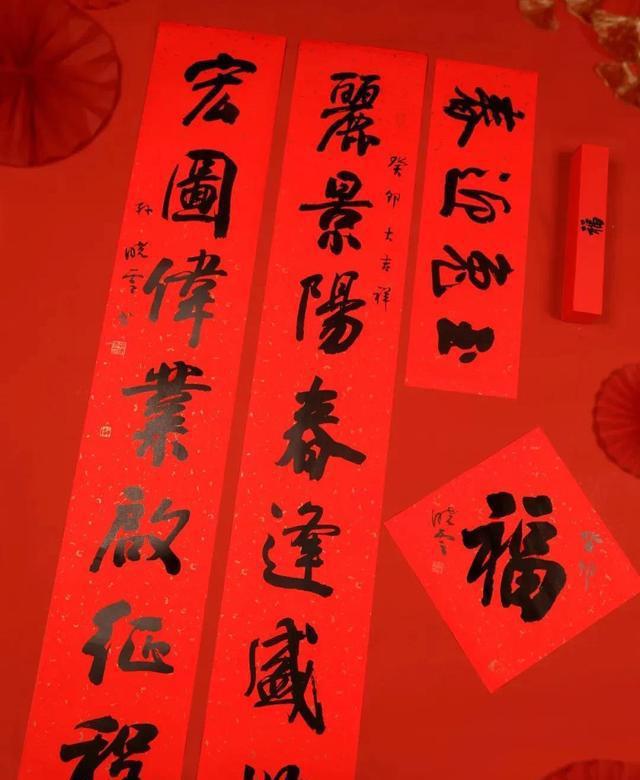 玉兔迎春
麗景陽春逢盛
癸卯大吉祥
宏圖偉業啟征程
孙晓雲书
福
癸卯
晓雲